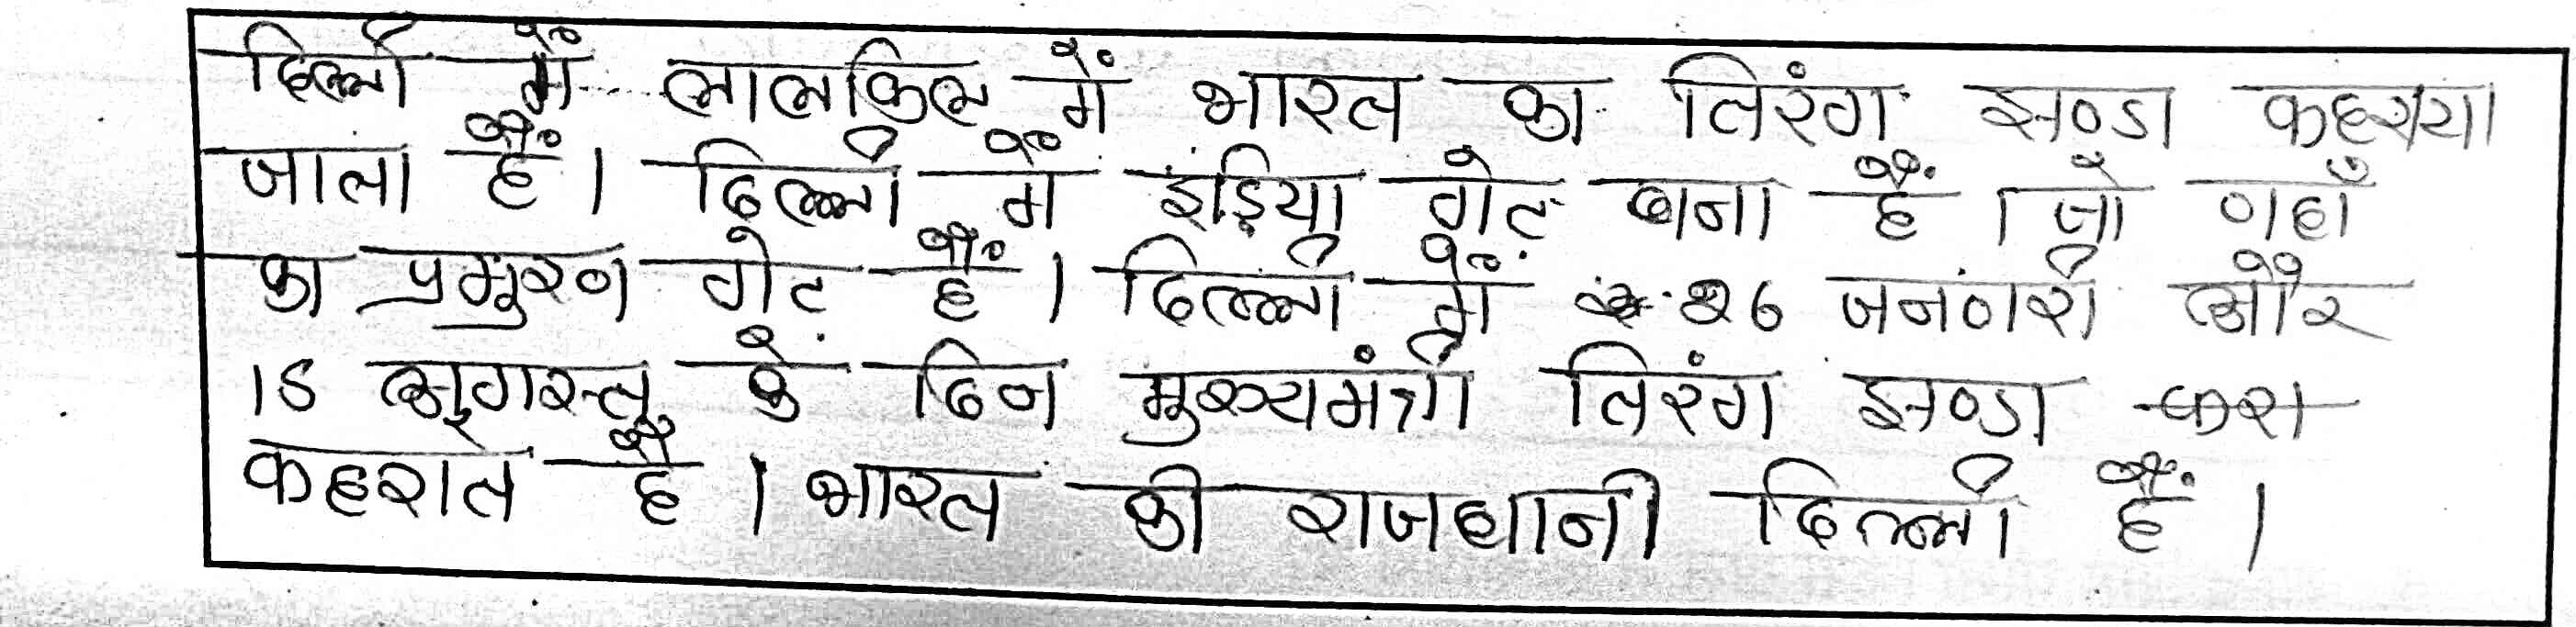 दिल्ली में लालकिल में भारत का तिरंग झण्डा कहराया
जाता हैं। दिल्ली में इंड़िया गेट बना हैं। जो वहाँ
का प्रमुख गेट हैं। दिल्ली में 26 जनवरी और
15 अगस्त के दिन मुख्यमंत्री तिरंग झण्डा
कहरात है। भारत की राजधानी दिल्ली हैं।